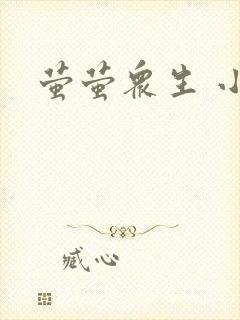 萤萤众生 小
臧心